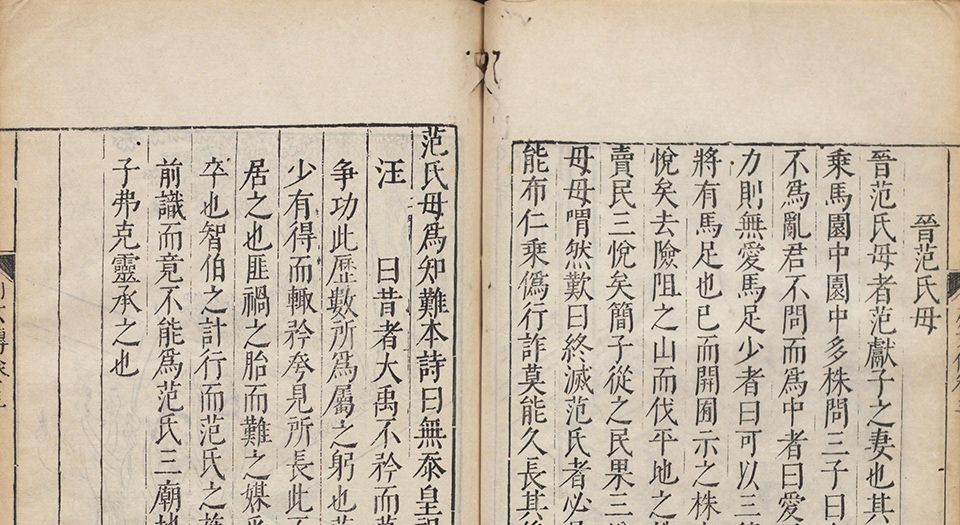 晉范氏母
晉范氏母者范獻子之妻也其
乘馬園中園中多株問三子曰
不爲亂君不問而爲中者曰愛
力則無愛馬足少者曰可以三
將有馬足也已而開囿示之株
悅矣去險阻之山而伐平地之
賣民三悅矣簡子從之民果三
母母喟然歎曰終滅范氏者必
能布仁乘僞行詐莫能久長其
范氏母爲知難本詩曰無忝皇祖
汪
曰昔者大禹不矜而
争功此歷數所爲屬之躬也
少有得而輙矜癸見所長此
居之也匪禍之胎而難之媒
卒也智伯之計行而范氏之
前識而竟不能爲范氏三廟
子弗克靈承之也